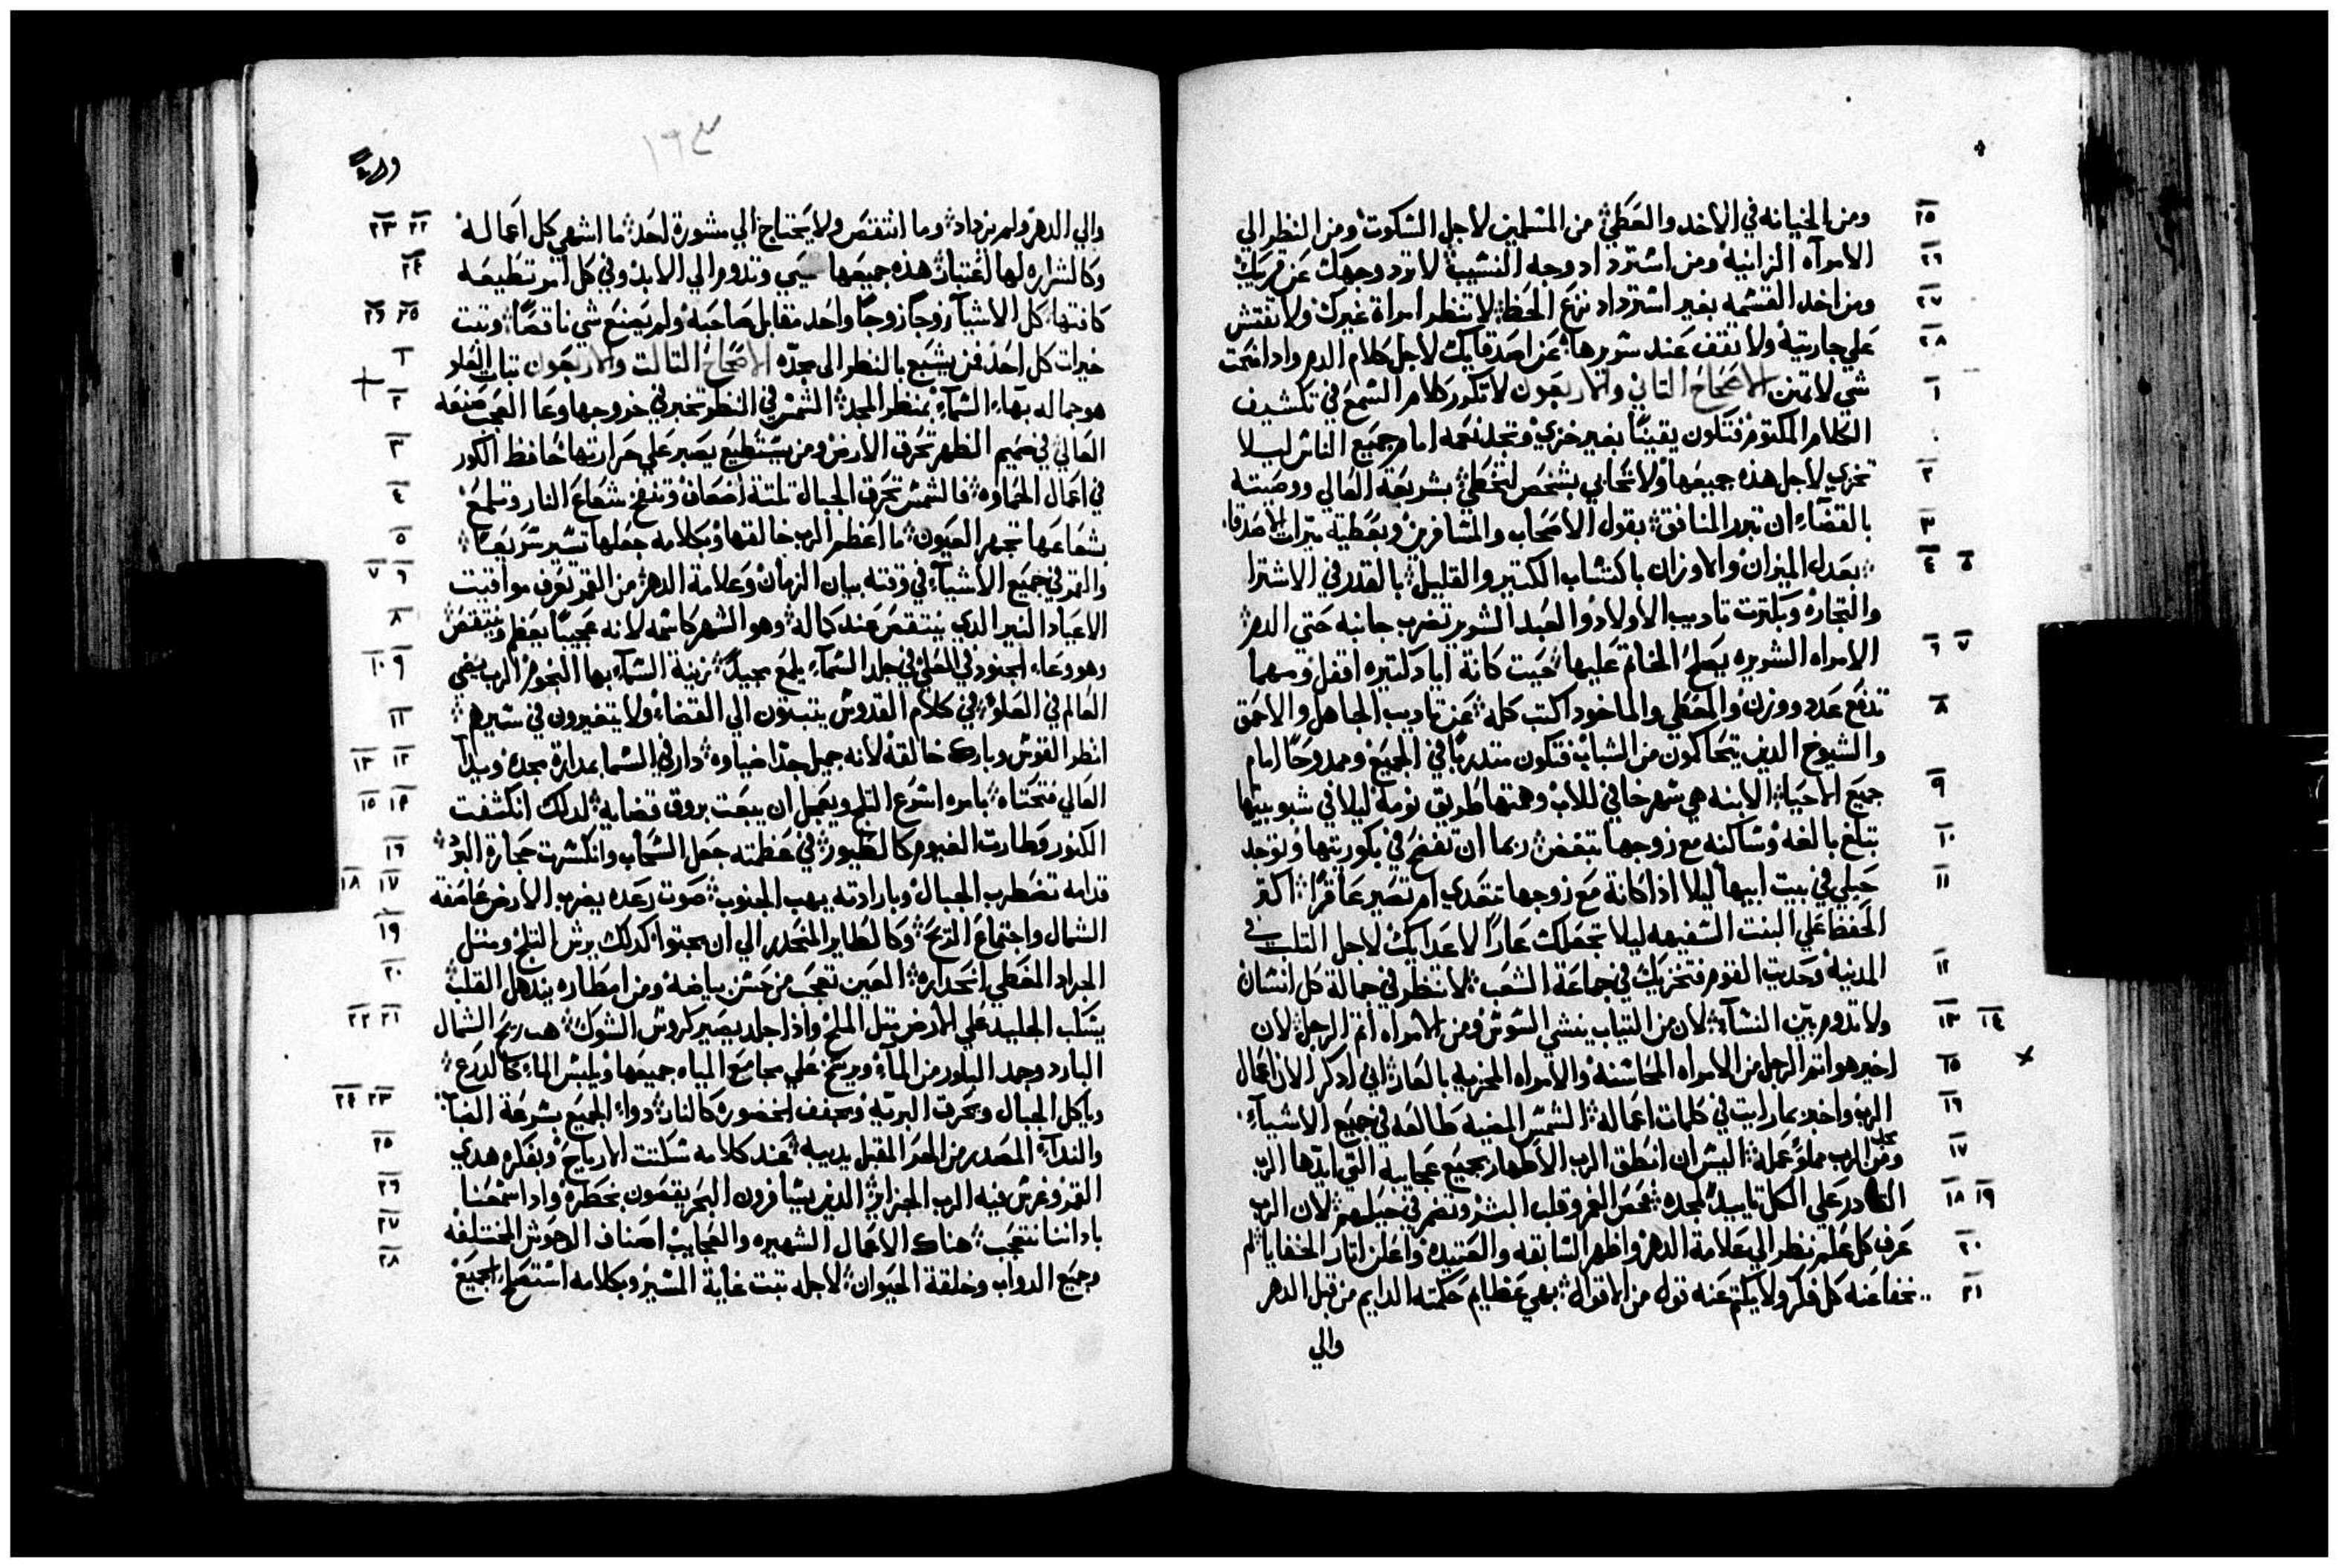 ٢٥ ومن الخيانه في الاخد والعطي ؛ من المسلمين لاجل السكوت ومن النظر الي
٢٦ الامراه الزانيه ومن استرداد وجه النسيب لا ترد وجهك عن قريبك
٢٧ ومن اخد القسمه بغير استرداد نزع الحظ ؛ لا تنظر امراة غيرك ولا تفتش
٢٨ علي جاريته ولا تقف عند سريرها ؛ عن اصدقايك لاجل كلام الدم واذا منحت
١ شي لا تمنن الاصحاح التاني والاربعون لا تكرر كلام السمع في تكشيف
الكلام المكتوم فتكون يقينًا بغير خزي وتجد نعمه امام جميع الناس ليلا
٢ تخزي لاجل هذه جميعها ولا تحابي بشخص لتخطي ؛ بشريعة العالي ووصيته
٣ بالقضاء ان تبرر المنافق ؛ بقول الاصحاب والمسافرين وبعطية ميراث الاصدقاء
٤ ٥ ؛ بعدل الميزان والاوزان باكتساب الكتير والقليل ؛ بالقدر في الاشترا
والتجاره وبكترت تاديب الاولاد والعبد الشرير تضرب جانبه حتي الدم
٦ ٧ الامراه الشريره يصلح الخاتم عليها ؛ حيت كانة اياد كتيره اقفل ومهما
٨ تدفع عدد ووزن والمعطي والماخود اكتب كله ؛ عن تاديب الجاهل والاحمق
والشيوخ الدين يتحاكمون من الشباب فتكون متدربًا في الجميع وممدوحًا امام
٩ جميع الاحيا ؛ الابنه هي سهر خافي للاب وهمتها طريق نومه ليلا في شبوبيتها
١٠ بتلغ بالغه وساكنه مع زوجها تبغض ؛ ربما ان تفضح في بكوريتها وتوجد
١١ حبلي في بيت ابيها ليلا اذا كانة مع زوجها تتعدي ام تصير عاقرًا ؛ اكتر
الحفظ علي البنت السفيهه ليلا تجعلك عارًا لاعدايك لاجل التلب في
١٢ المدينه وحديت القوم فتخزيك في جماعة الشعب ؛ لا تنظر في جمالة كل انسان
١٣ ١٤ ولا تدوم بين النساء ؛ لان من التياب ينشي السوس ومن الامراه اتم الرجل ؛ لان
١٥ اخير هو اتم الرجل من الامراه المحاسنه والامراه المخزيه بالعار ؛ اني ادكر الان اعمال
١٦ الرب واخبر بما رايت في كلمات اعماله ؛ الشمس المضيه طالعه في جميع الاشياء
١٧ ومن مجد الرب مملوً عمله ؛ اليس ان انطق الرب الاطهار بجميع عجايبه التي ايدها الرب
١٨ ١٩ القادر علي الكل تاييدً لمجده ؛ فحص الغمر وقلب البشر وتفهم في حيلهم ؛ لان الرب
٢٠ عرف كل علم ونظر الي علامة الدهر واظهر السابقه والعتيده واعلن اتار الخفايا ؛ لم
٢١ يخفا عنه كل فكر ولا يكتم عنه قول من الاقوال ؛ بهي عظايم حكمته الدايم من قبل الدهر
والي
١٦٣
٢٢ ٢٣ والي الدهر ولم يزداد ؛ وما انتقص ولا يحتاج الي مشورة احد ؛ ما اشهي كل اعماله
٢٤ وكالشراره لها اعتبار ؛ هذه جميعها حيي وتدوم الي الابد وفي كل امر تطيعه
٢٥ ٢٦ كافتها ؛ كل الاشياء زوجًا زوجًا واحد مقابل صاحبه ولم يصنع شي ناقصًا ؛ وتبت
١ خيرات كل احد فمن يشبع بالنظر الي مجده الاصحاح التالت والاربعون تبات العلو
٢ هو جماله بهاء السماء بمنظر المجد ؛ الشمس في النظر تخبر في خروجها وعا العجب صنعه
٣ العالي في صميم الظهر تحرق الارض ومن يستطيع يصبر علي حرارتها حافظ الكور
٤ في اعمال الحماوه ؛ فالشمس تحرق الجبال تلتة اضعاف وتنفخ شعاع النار وتلمع
٥ بشعاعها تجهر العيون ؛ ما اعظم الرب خالقها وبكلامه جعلها تسير سريعًا ؛
٦ ٧ والقمر في جميع الاشياء في وقته بيان الزمان وعلامة الدهر ؛ من القمر تعرف مواقيت
٨ الاعياد النير الدي ينتقص عند كماله ؛ وهو الشهر كاسمه لانه عجيبًا يعظم وينتقص ؛
٩ ١٠ وهو وعاء الجنود في العلي في جلد السماء يلمع مجيدً ؛ زينة السماء بها النجوم الرب يضي
١١ العالم في العلو ؛ في كلام القدوس يتبتون الي القضاء ولا يتغيرون في سيرهم ؛
١٢ ١٣ انظر القوس وبارك خالقه لانه جميل جدًا ضياوه ؛ دار في السما بمدارة مجده ويدآ
١٤ ١٥ العالي فتحتاه ؛ بامره اسرع التلج ويعجل ان يبعت بروق قضايه ؛ لدلك انكشفت
١٦ الكنوز وطارت الغيوم كالطيور ؛ في عظمته جعل السحاب وانكسرت حجارة البرد ؛
١٧ ١٨ قدامه تضطرب الجبال وبارادته يهب الجنوب ؛ صوت رعده يضرب الارض عاصفة
١٩ الشمال واجتماع الريح ؛ وكالطاير المنحدر الي ان يجتوا كدلك يرش التلج ومتل
٢٠ الجراد المغطي انحداره ؛ العين تعجب من حسن بياضه ومن امطاره يندهل القلب
٢١ ٢٢ يسكب الجليد علي الارض متل الملح واذا جلد يصير كروس الشوك ؛ هب ريح الشمال
البارد وجمد البلور من الماء ويريح علي مجامع المياه جميعها ويلبس الماء كالدرع ؛
٢٣ ٢٤ وياكل الجبال ويحرق البريه ويجفف الخضوره كالنار ؛ دواء الجميع بسرعة الضبآ
٢٥ والنداء المصدر من الحر المقبل يديبه ؛ عند كلامه سكنت الارياح وبفكره هدي
٢٦ القمر وغرس فيه الرب الجزاير ؛ الدين يسافرون البحر يقصون بخطره واذا سمعنا
٢٧ باداننا نتعجب ؛ هناك الاعمال الشهيره والعجايب اصناف الوحوش المختلفه
٢٨ وجميع الدواب وخلقة الحيوان ؛ لاجله تبت غاية المسير وبكلامه استصلح الجميع